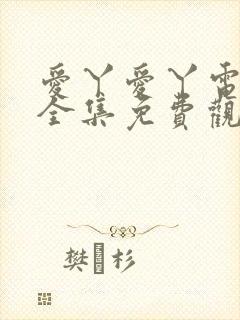 愛丫愛丫電
全集免費觀
樊 杉